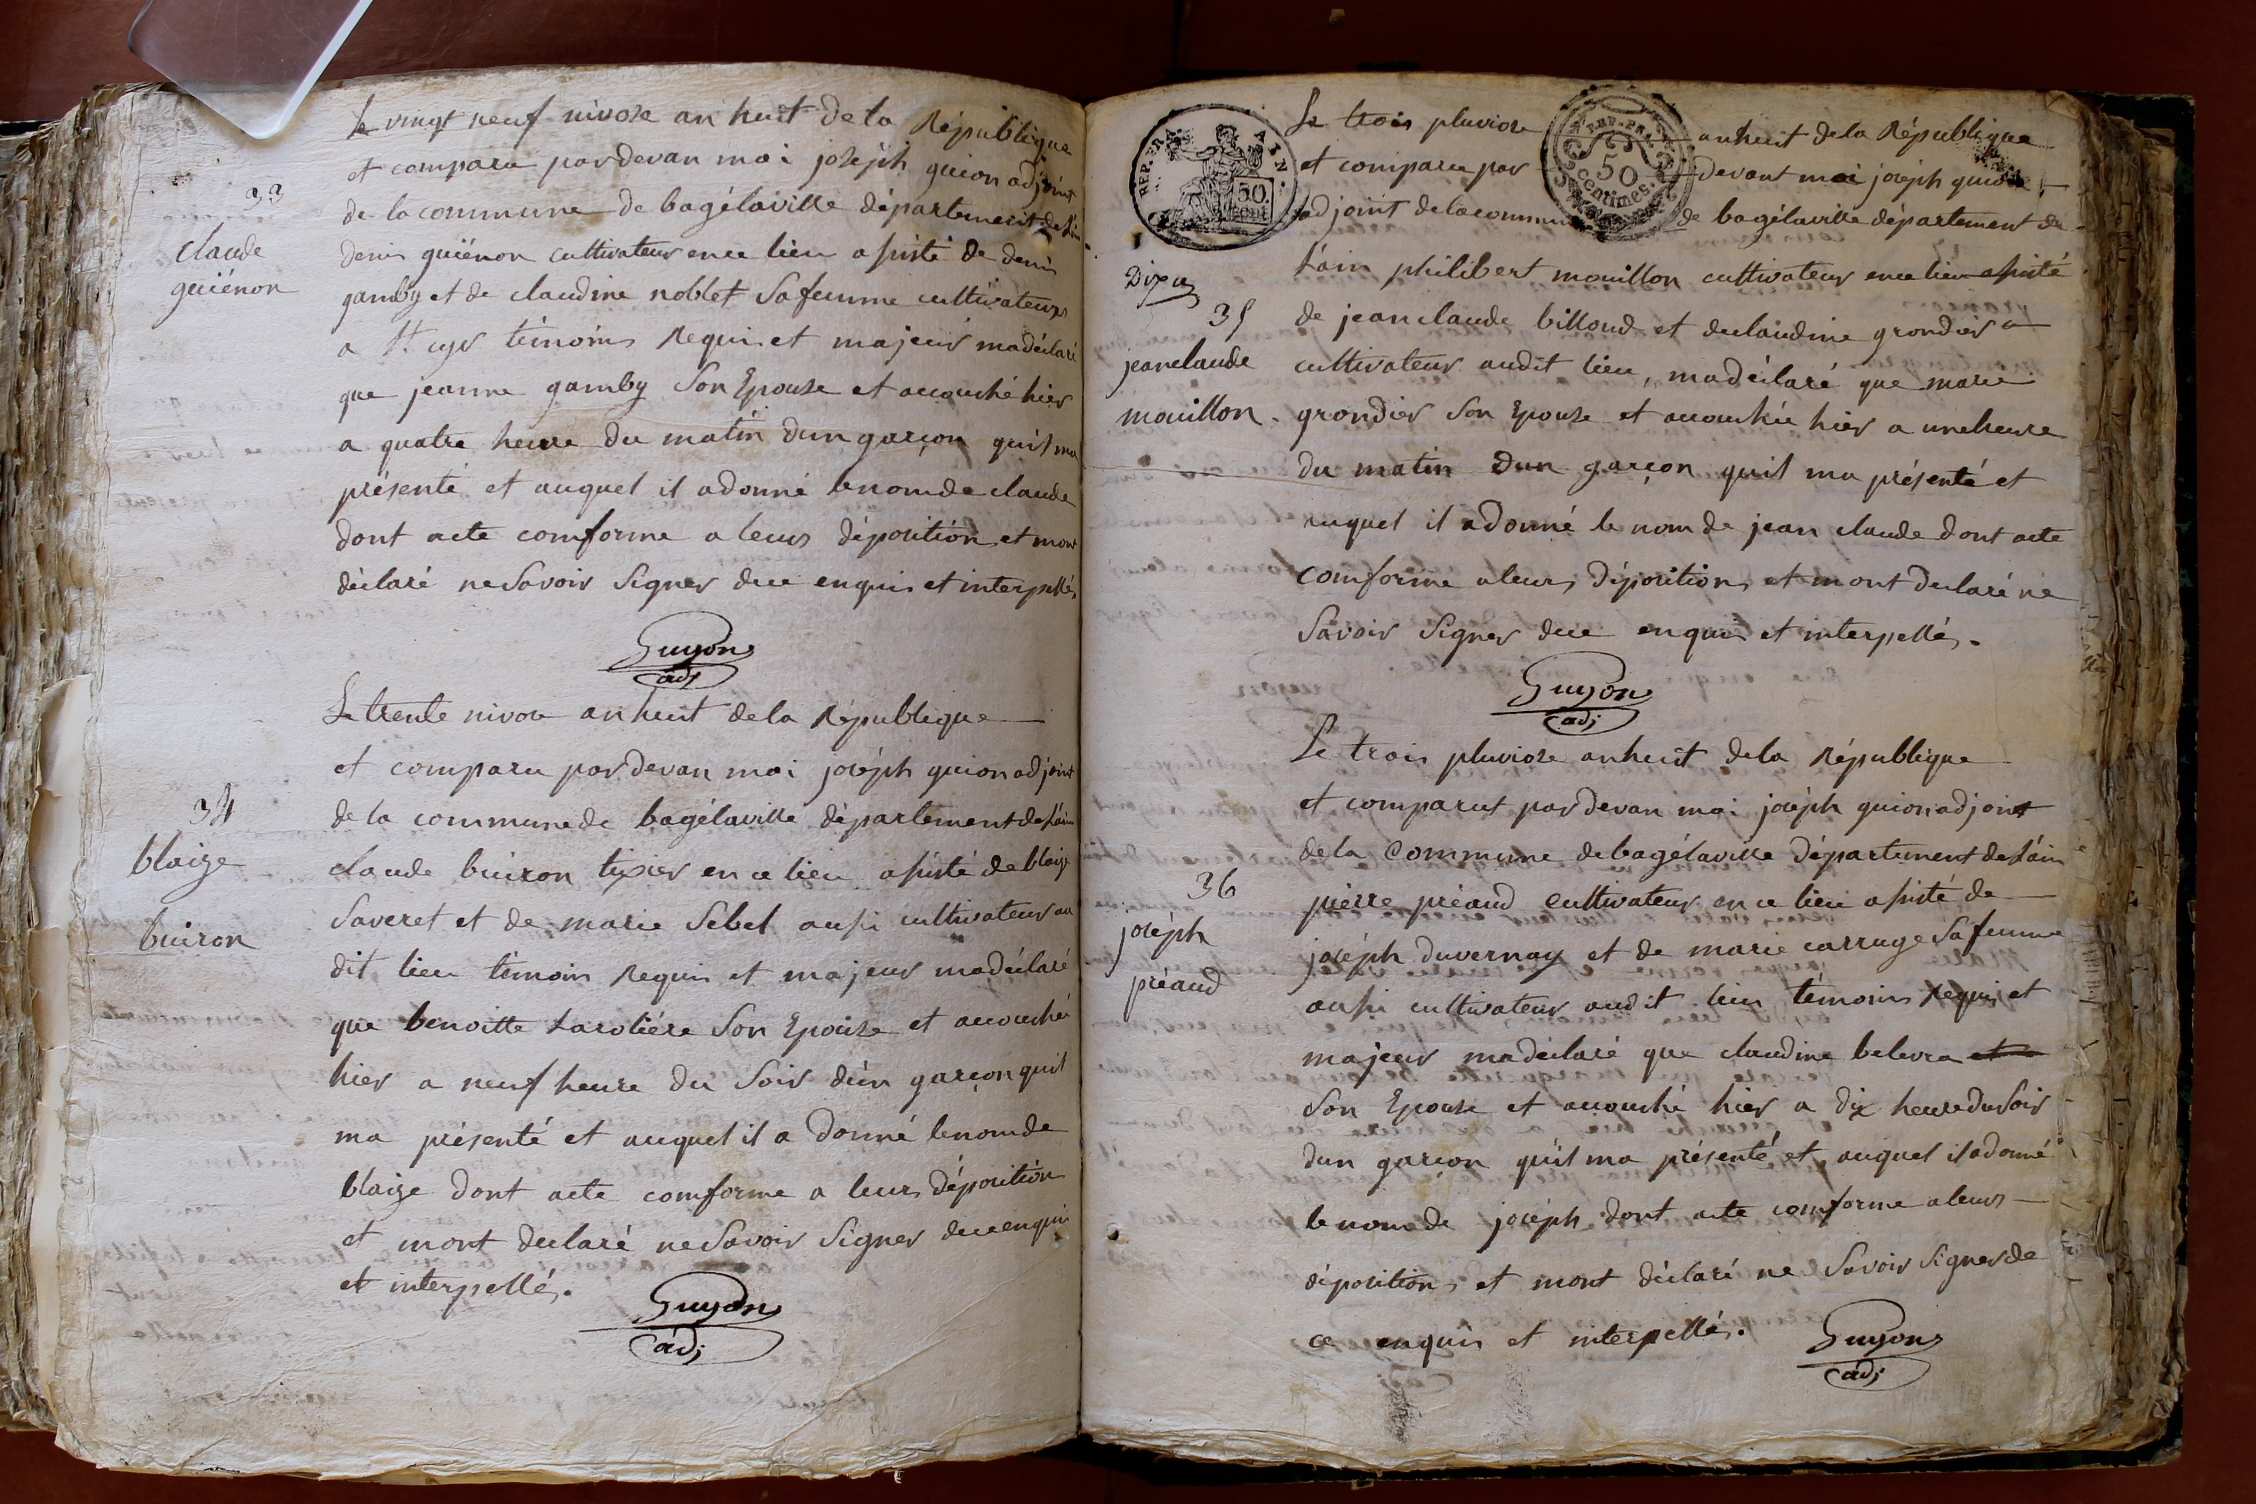 Le vingt neuf nivose an huit de la République
et comparu pardevan moi joseph guion adjoint
de la commune de bagélaville département de l'ain
33
claude
guiénon
denis guiénon cultivateur en ce lieu assisté de denis
gamby et de claudine noblet sa femme cultivateurs
a St cyr témoins requis et majeur ma déclaré
que jeanne gamby son Epouse et accouché hier
a quatre heure du matin dun garçon quil ma
présenté et auquel il a donné le nom de claude
dont acte comforme a leurs déposition et mont
déclaré ne savoir signer de ce enquis et interpellés
Guyon
adj
Le trente nivose an huit de la République
et comparu pardevan moi joséph guion adjoint
de la commune de bagélaville département de l'ain
34
blaize
buiron
claude buiron tixier en ce lieu assisté de blaize
saveret et de marie sebel aussi cultivateur au
dit lieu témoins requis et majeur ma déclaré
que benoitte Laroliére son Epouse et accouché
hier a neuf heure du soir d'un garçon quil
ma présenté et auquel il a donné le nom de
blaize dont acte comforme a leurs déposition
et mont declaré ne savoir signer de ce enquis
et interpellés.
Guyon
adj
REP. FRA. AIN.
50. cent.
REP. FRA.
50
centimes.
Le trois pluviose an huit de la République
et comparu par devant moi joséph guion
adjoint de la commune de bagélaville département de
l'ain philibert mouillon cultivateur en ce lieu assisté
35
jeanclaude
mouillon
de jean claude billoud et de claudine grondier
cultivateur audit lieu, ma déclaré que marie
grondier son Epouse et accouchée hier a une heure
du matin dun garçon quil ma présenté et
auquel il a donné le nom de jean claude dont acte
comforme a leurs dépositions et mont declaré ne
savoir signer de ce enquis et interpellés.
Guyon
adj
Le trois pluviose an huit de la République
et comparut pardevan moi joséph guion adjoint
de la commune de bagélaville département de l'ain
36
joséph
préaud
pierre préaud cultivateur en ce lieu assisté de
joséph duvernay et de marie carruge sa femme
aussi cultivateur audit lieu témoins requis et
majeur ma déclaré que claudine belevra et
son Epouse et accouché hier a dix heure du soir
dun garçon quil ma présenté et auquel il a donné
le nom de joséph dont acte comforme a leurs
dépositions et mont déclaré ne savoir signer de
ce enquis et interpellés.
Guyon
adj